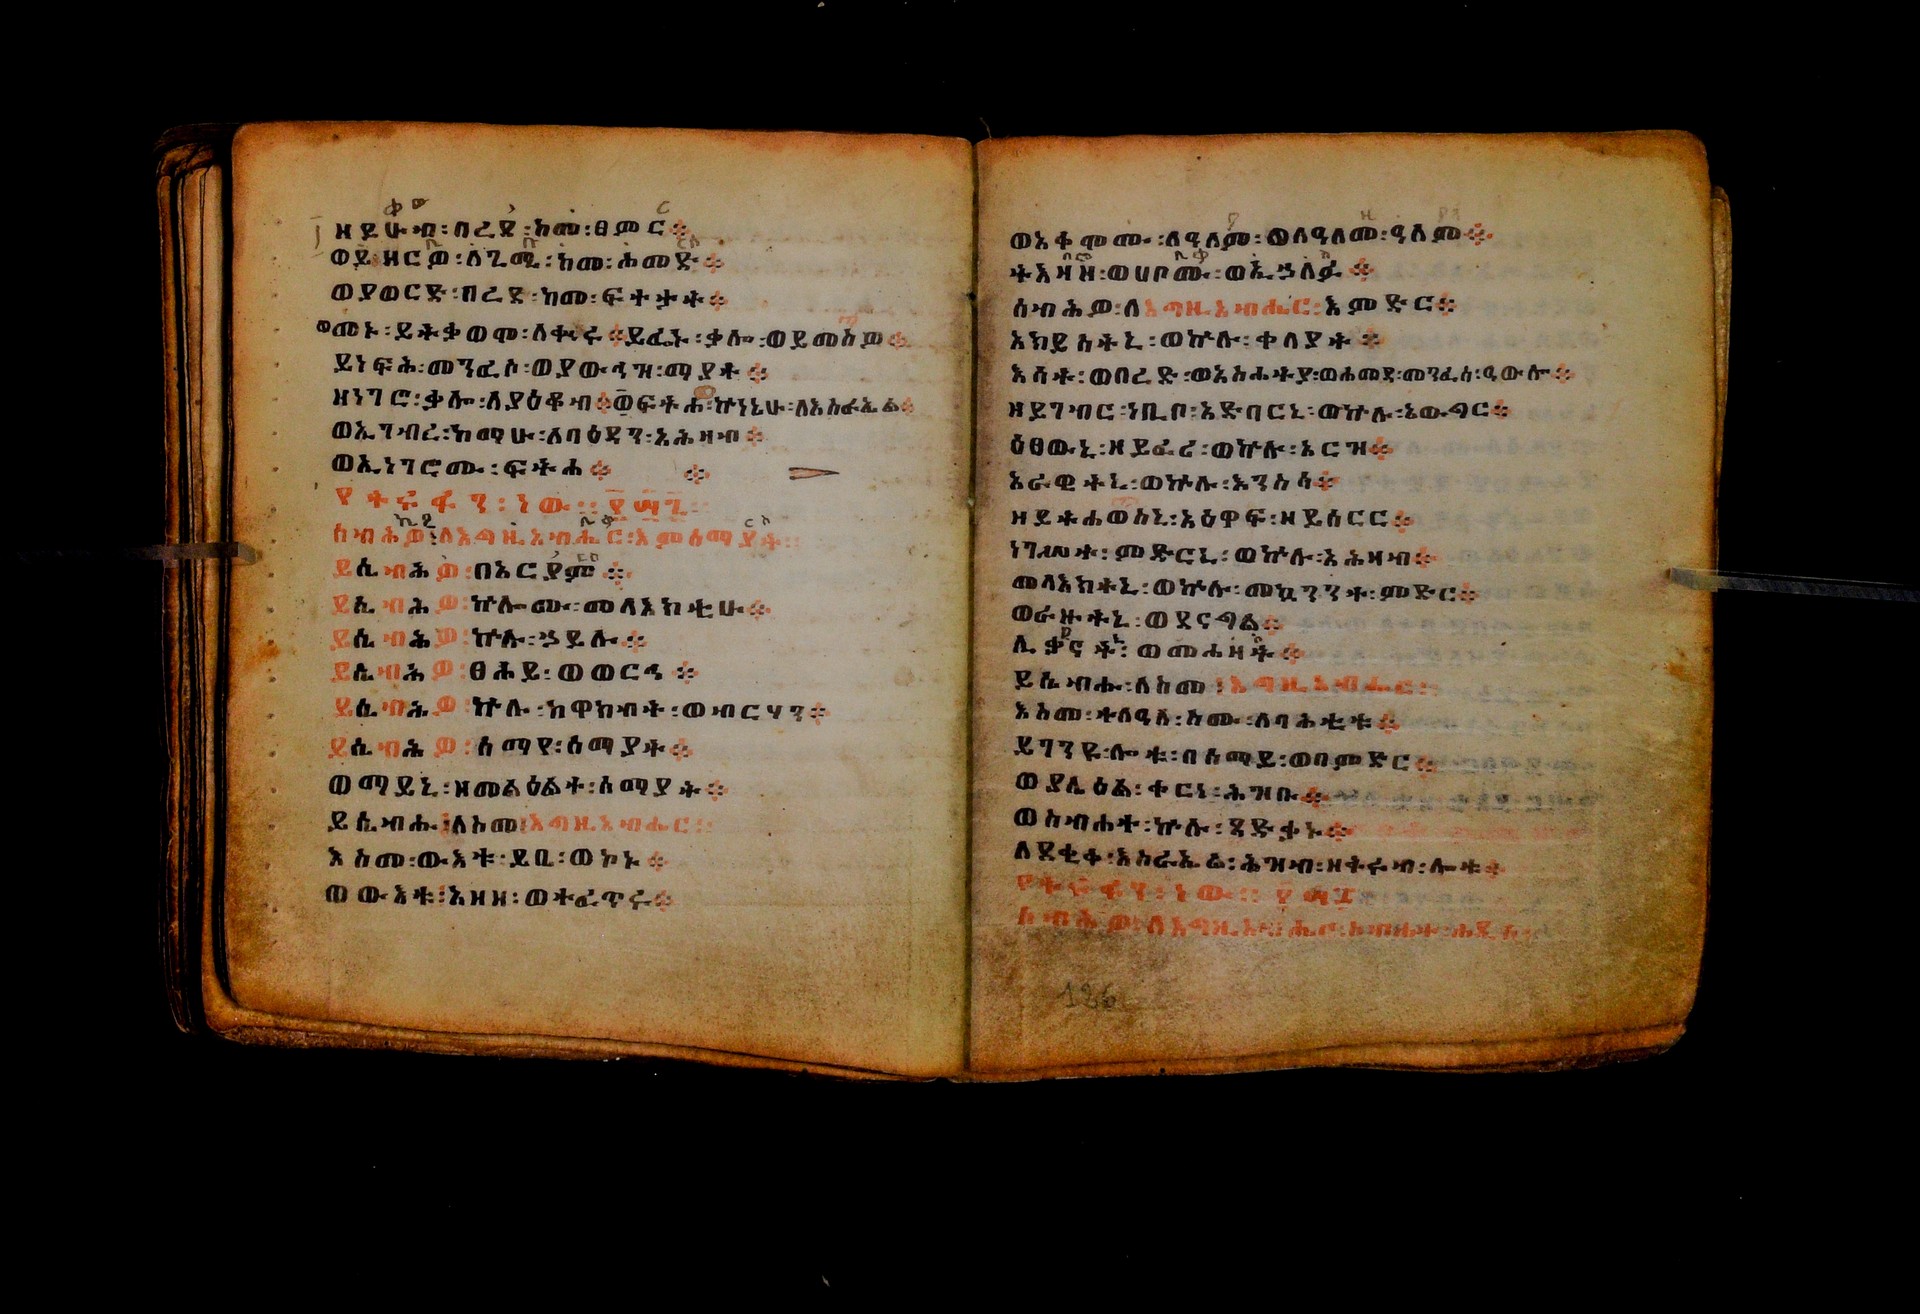 ዘይሁብ፡በረደ፡ከመ፡ፀምር፨
ወይዘርዎ፡ለጊሜ፡ከመ፡ሐመድ፨
ወያወርድ፡በረደ፡ከመ፡ፍተታት፨
ወመኑ፡ይትቃወሞ፡ለቍሩ፨ይፌኑ፡ቃሎ፡ወይመስዎ፨
ይነፍሕ፡መንፈሶ፡ወያውኅዝ፡ማያት፨
ዘነገሮ፡ቃሎ፡ለያዕቆብ፨ወፍትሐ፡ኵነኔሁ፡ለእስራኤል፨
ወኢገብረ፡ከማሁ፡ለባዕዳን፡አሕዛብ፨
ወኢነገሮሙ፡ፍትሐ፨ ፨
ስብሕዎ፡ለእግዚአብሔር፡እምሰማያት፨
ይሴብሕዎ፡በአርያም፨
ይሴብሕዎ፡ኵሎሙ፡መላእክቲሁ፨
ይሴብሕዎ፡ኵሉ፡ኃይሉ፨
ይሴብሕዎ፡ፀሐይ፡ወወርኅ፨
ይሴብሕዎ፡ኵሉ፡ከዋክብት፡ወብርሃን፨
ይሴብሕዎ፡ሰማየ፡ሰማያት፨
ወማይኒ፡ዘመልዕልተ፡ሰማያት፨
ይሴብሑ፡ለስመ፡እግዚአብሔር፨
እስመ፡ውእቱ፡ይቤ፡ወኮኑ፨
ወውእቱ፡አዘዘ፡ወተፈጥሩ፨
ወአቆሞሙ፡ለዓለም፡ወለዓለመ፡ዓለም፨
ትእዛዘ፡ወሀቦሙ፡ወኢኃለፈ፨
ሰብሕዎ፡ለእግዚአብሔር፡እምድር፨
አክይስትኒ፡ወኵሉ፡ቀላያት፨
እሳት፡ወበረድ፡ወአስሐትያ፡ወሐመዳ፡መንፈሰ፡ዓውሎ፨
ዘይገብር፡ነቢቦ፡አድባርኒ፡ወኵሉ፡አውግር፨
ዕፀውኒ፡ዘይፈሪ፡ወኵሉ፡አርዝ፨
አራዊትኒ፡ወኵሉ፡እንስሳ፨
ዘይትሐወስኒ፡አዕዋፍ፡ዘይሰርር፨
ነገሥት፡ምድርኒ፡ወኵሉ፡አሕዛብ፨
መላእክትኒ፡ወኵሉ፡መኳንንተ፡ምድር፨
ወራዙትኒ፡ወደናግል፨
ሊቃናት፡ወመሐዛት፨
ይሴብሑ፡ለስመ፡እግዚአብሔር፨
እስመ፡ተለዓለ፡ስሙ፡ለባሕቲቱ፨
ይገንዩ፡ሎቱ፡በሰማይ፡ወበምድር፨
ወያሌዕል፡ቀርነ፡ሕዝቡ፨
ወስብሐተ፡ኵሉ፡ጻድቃኑ፨
ለደቂቀ፡እስራኤል፡ሕዝብ፡ዘቅሩብ፡ሎቱ፨
ሰብሕዎ፡ለእግዚአብሔር፡ስብሐተ፡ሐዲሰ፨
126